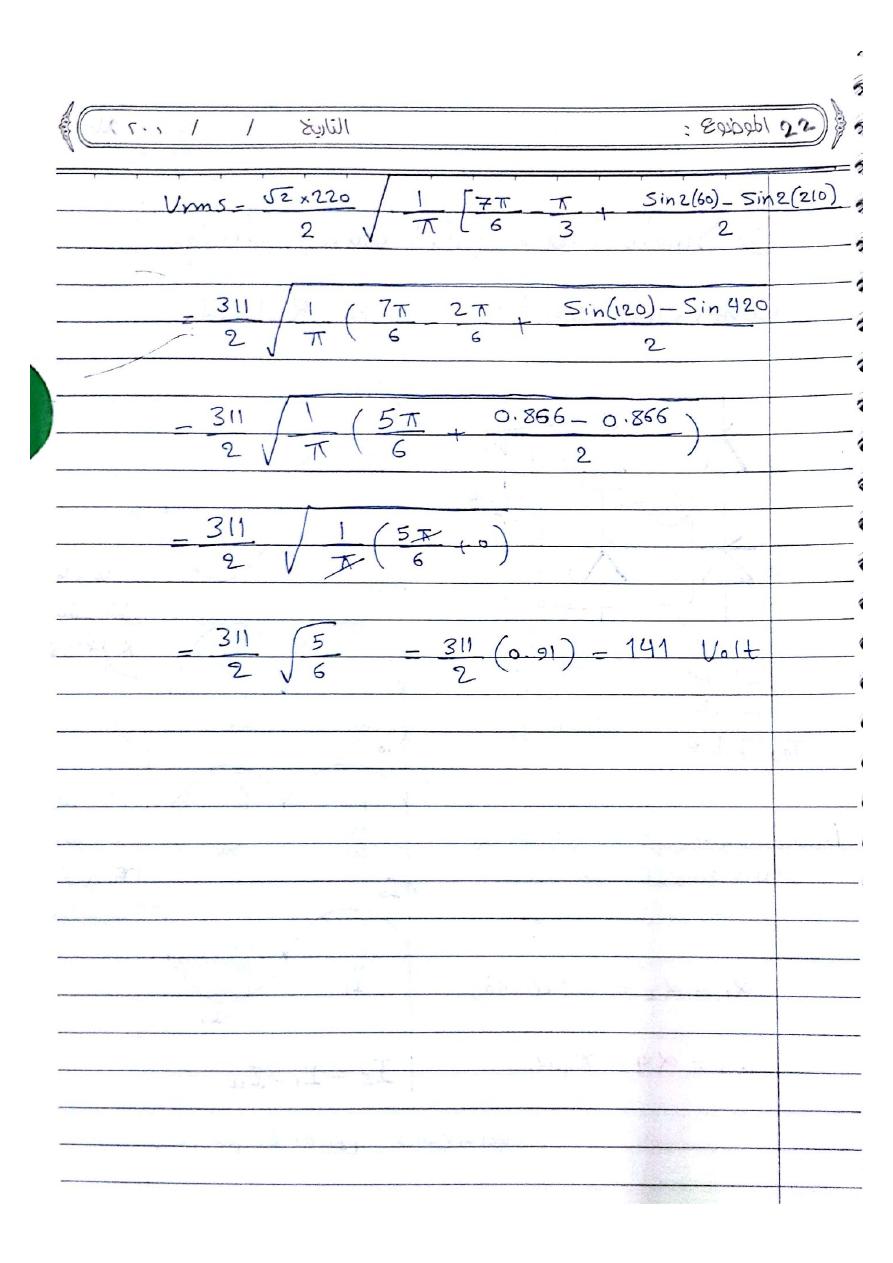 22 الموضوع : التاريخ / / ٢٠٠
Vrms = √2 ×220 / 2 √ 1/π [ 7π/6 - π/3 + Sin2(60) - Sin2(210) / 2
= 311/2 √ 1/π ( 7π/6 - 2π/6 + Sin(120) - Sin 420 / 2
= 311/2 √ 1/π ( 5π/6 + 0.866 - 0.866 / 2 )
= 311/2 √ 1/π ( 5π/6 + 0 )
= 311/2 √ 5/6 = 311/2 (0.91) = 141 Volt